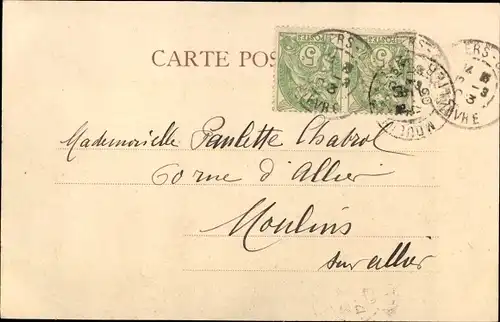 CARTE POS
5 5
Mademoiselle Paulette Chabrol
60 rue d'Allier
Moulins
sur allier